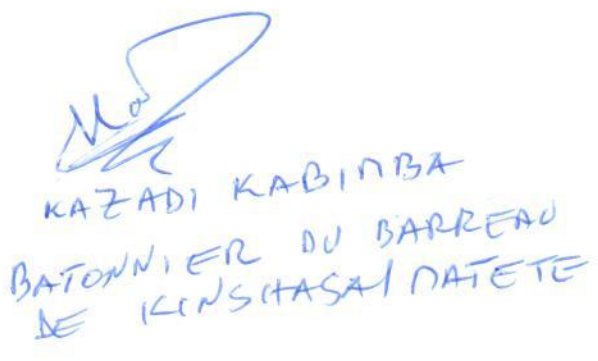 KAZADI KABIMBA
BATONNIER DU BARREAU
DE KINSCHASA/MATETE